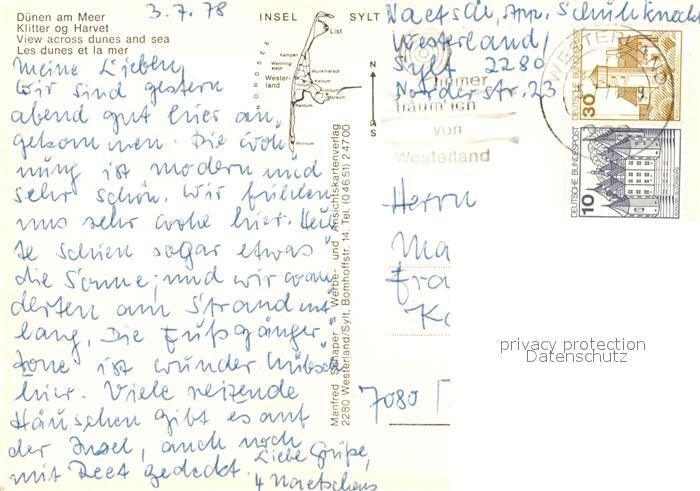 Dünen am Meer
Klitter og Harvet
View across dunes and sea
Les dunes et la mer
3.7.78
Meine Lieben,
Wir sind gestern
abend gut hier an
gekommen. Die Woh
nung ist modern und
sehr schön. Wir fühlen
uns sehr wohl hier. Heu
te schien sogar etwas
die Sonne, und wir wan
derten am Strand ent
lang. Die Fußgänger
zone ist wunder hübsch
hier. Viele reizende
Häuschen gibt es auf
der Insel, auch noch
mit Reet gedeckt.
Liebe Grüße,
4 Naetschens
INSEL SYLT
NORDSEE
List
Kampen
Wenning-
stedt
Wester-
land
Munkmarsch
Keitum
Archsum
Morsum
Rantum
Hörnum
N
S
Manfred Schaper - Werbe- und Ansichtskartenverlag
2280 Westerland/Sylt, Bomhoffstr. 14, Tel. (0 46 51) 2 47 00
Naetsch, App. Schuhknecht
Westerland/
Sylt 2280
Norderstr. 23
Immer
träum' ich
von
Westerland
WESTERLAND
DEUTSCHE BUNDESPOST
30
DEUTSCHE BUNDESPOST
10
Herrn
Ma
Fra
K
7080
privacy protection
Datenschutz